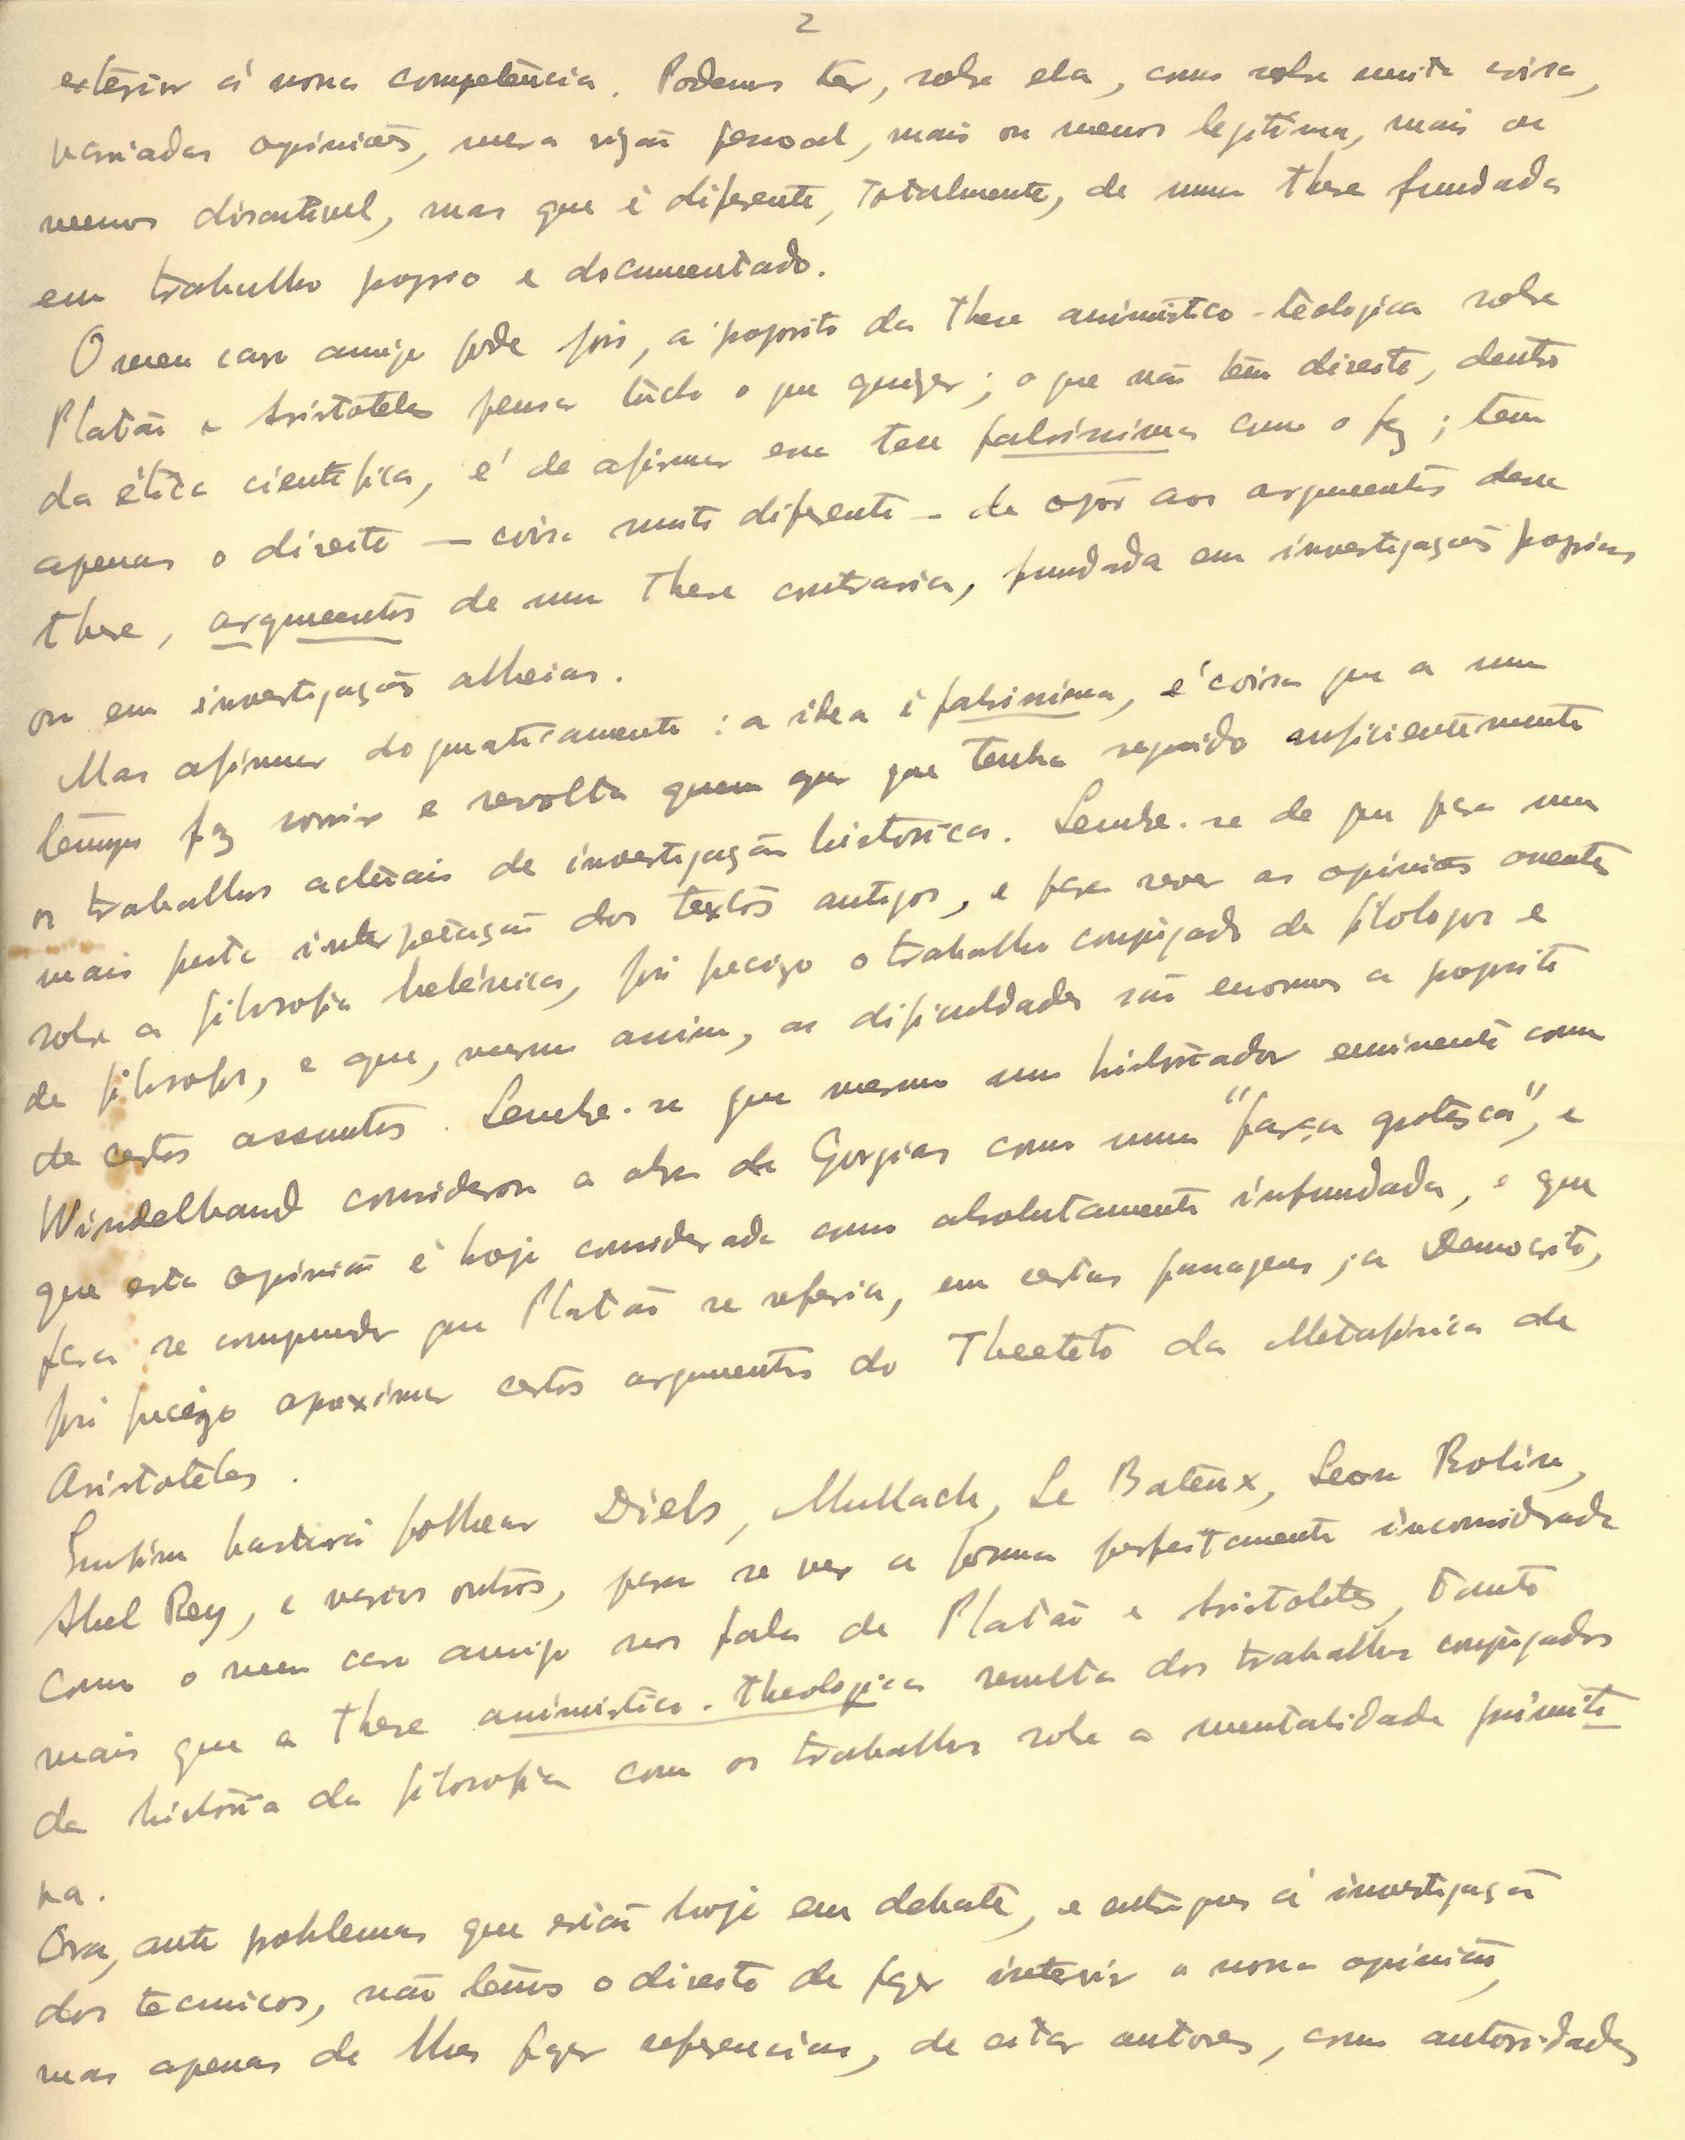 2
exterior á nossa competência. Podemos ter, sobre ela, como sobre muita coisa,
variadas opiniões, mera visão pessoal, mais ou menos legitima, mais ou
menos discutivel, mas que é diferente, totalmente, de uma these fundada
em trabalho proprio e documentado.
O meu caro amigo pode pois, a proposito da these animistico-teologica sobre
Platão e Aristoteles pensar tudo o que quizer; o que não tem direito, dentro
da ética cientifica, é de afirmar em tom falsissima como o fez; tem
apenas o direito — coisa muito diferente — de opôr aos argumentos dessa
these, argumentos de uma these contraria, fundada em investigações proprias
ou em investigações alheias.
Mas afirmar dogmaticamente: a idea é falsissima, é coisa que a um
tempo faz sorrir e revolta quem quer que tenha seguido suficientemente
os trabalhos actuais de investigação historica. Lembre-se de que para uma
mais justa interpetação dos textos antigos, e para rever as opiniões
sobre a filosofia helénica, foi precizo o trabalho conjugado de filologos e
de filosofos, e que, mesmo assim, as dificuldades são enormes a proposito
de certos assuntos. Lembre-se que mesmo um historiador eminente como
Windelband considerou a obra de Gorgias como uma "farça grotesca", e
que esta opinião é hoje considerada como absolutamente infundada, e que
para se compreender que Platão se referia, em certas passagens, a Democrito,
foi precizo aproximar certos argumentos do Theeteto da Metafisica de
Aristoteles.
Emfim bastará folhear Diels, Mullach, Le Bateux, Leon Robin,
Abel Rey, e varios outros, para se ver a forma perfeitamente inconsiderada
como o meu caro amigo nos fala de Platão e Aristoteles, tanto
mais que a these animistico-theologica resulta dos trabalhos conjugados
da história da filosofia com os trabalhos sobre a mentalidade primiti
va.
Ora, ante problemas que estão hoje em debate, e entregues á investigação
dos tecnicos, não temos o direito de fazer intervir a nossa opinião,
mas apenas de lhes fazer referencias, de citar autores, como autoridades